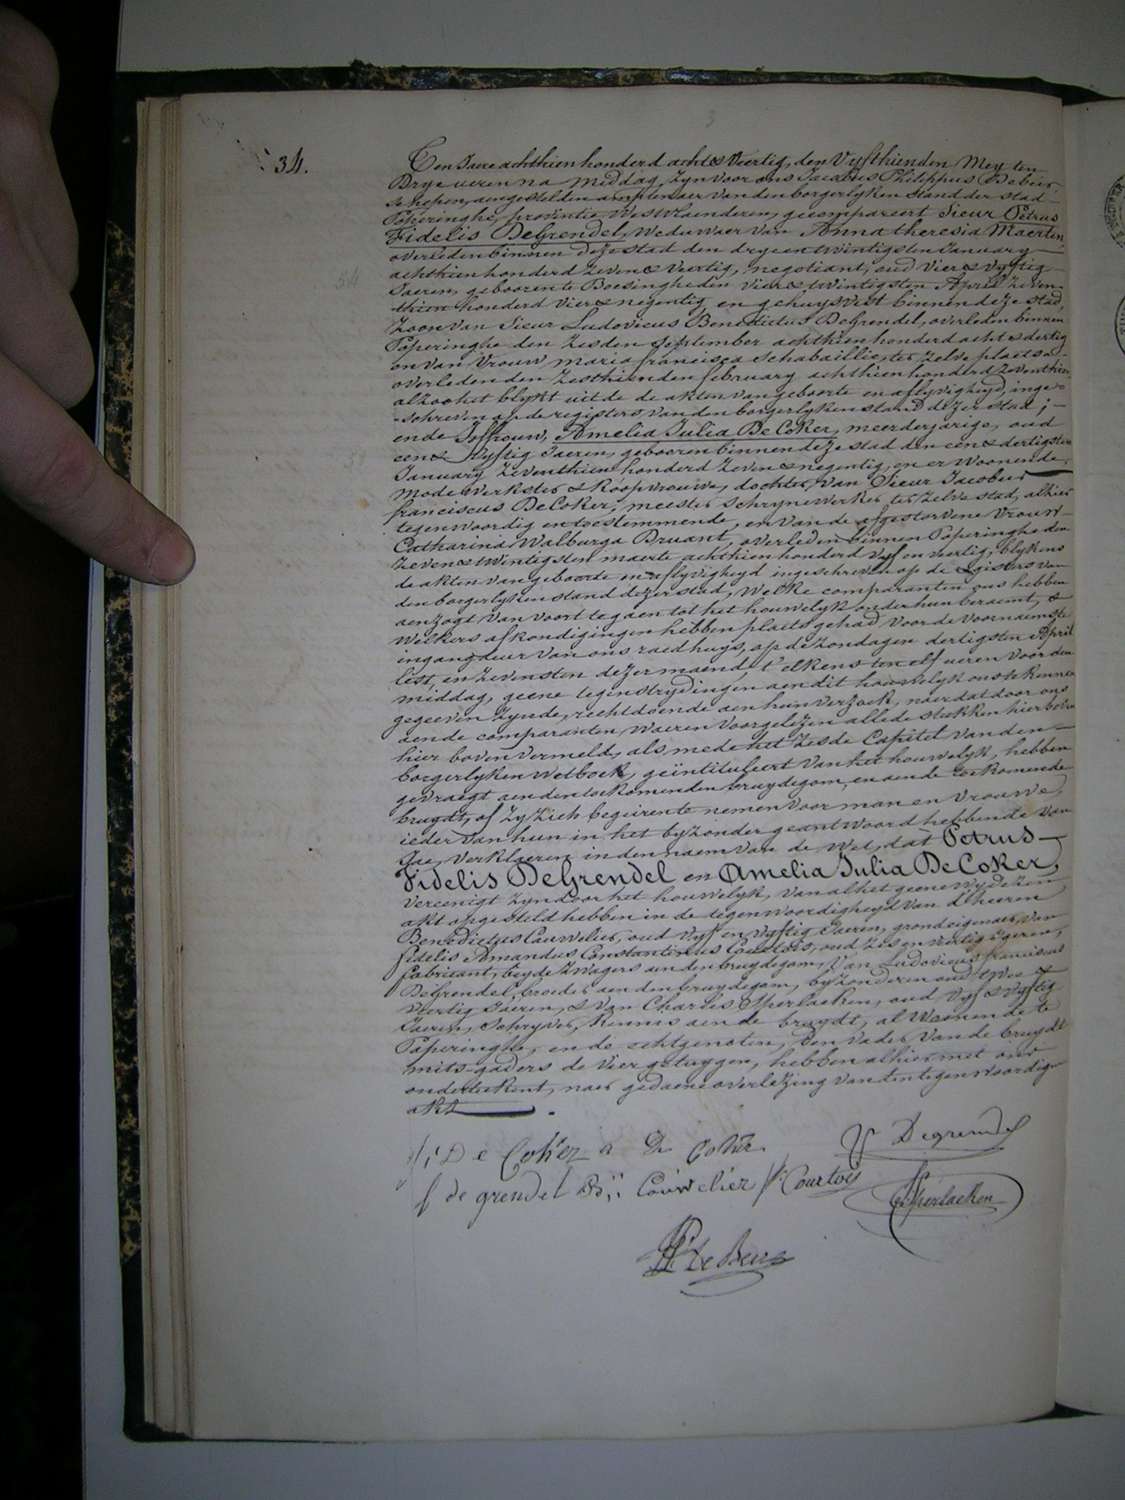 34.
Ten Jaere achthien honderd acht & Veertig, den Vyfthienden Mey ten
Drye ueren na middag, Zyn voor ons Jacobus Philippus Debeir,
schepen, aengestelden amptenaer van den borgerlyken stand der stad
Poperinghe, provintie Westvlaenderen, gecompareert Sieur Petrus
Fidelis DeGrendel, Weduwaer van Anna theresia Maerten,
overleden binnen deze stad den dry en twintigsten January
achthien honderd Zeven & Veertig, negotiant, oud Vier & Vyftig
Jaeren, geboren te Boesinghe den Vier & twintigsten April Zeven-
thien honderd Vier & negentig en gehuysvest binnen deze stad,
Zoon van Sieur Ludovicus Benedictus DeGrendel, overleden binnen
Poperinghe den Zesden September achthien honderd acht & dertig
en van Vrouw maria francisca Schabaillie, ter Zelve plaetse
overleden den Zesthienden february achthien honderd Zeventhien,
alzoo het blykt uit de akten van geboorte en aflyvigheyd, inge-
schreven op de registers van den borgerlyken stand dezer stad; -
ende Joffrouw, Amelia Julia De Coker, meerderjarige, oud
een & Vyftig Jaeren, geboren binnen deze stad den een & dertigsten
January Zeventhien honderd Zeven & negentig, en er Woonende,
Mode Werkster & Koopvrouwe, dochter van Sieur Jacobus
franciscus DeCoker, meester schrynwerker ter Zelve stad, alhier
tegenwoordig en toestemmende, en van de afgestorvene Vrouw
Catharina Walburga Bruant, overleden binnen Poperinghe den
Zeven & Wintigsten maerte achthien honderd Vyf en Veertig, blykens
de akten van geboorte en aflyvigheyd ingeschreven op de registers van
den borgerlyken stand dezer stad, Welke comparanten ons hebben
aenzogt van voort te gaen tot het houwelyk onder hun beraemt, &
Welkers afkondigingen hebben plaets gehad voor de voornaemste
ingangdeur van ons raedhuys, op de Zondagen dertigsten April
lest, en Zevensten dezer maend, t'elkens ten elf ueren voor den
middag, geene tegenstrydingen aen dit houwelyk ons te kennen
gegeeven Zynde, recht doende aen hun verzoek, naer dat door ons
aen de comparanten, Waeren Voorgelezen alle de stukken hierboven
hier boven vermeld, als mede het Zesde Capitel van den
borgerlyken Wetboek, geïntituleert Van het houwelyk, hebben
gevraegt aen den toekomenden bruydegom, en aen de toekomende
bruydt, of Zy Zich begeirente nemen Voor man en Vrouwe,
ieder van hun in het byzonder geantwoord hebbende van
Jae, Verklaeren in den naem van de Wet, dat Petrus
Fidelis DeGrendel en Amelia Julia DeCoker,
vereenigt Zyn door het houwelyk, van al het geene Wy dezen
akt opgesteld hebben in de tegenwoordigheyd van d'heeren
Benedictus Cauwelier, oud Vyf en Vyftig Jaeren, grondeigenaer, van
fidelis Amandus Constantinus Courtois, oud Zes en Veertig Jaeren,
fabricant, beyde Zwagers aen den bruydegom, Van Ludovicus franciscus
DeGrendel, broeder aen den bruydegom, byzonderen oud twee &
Veertig Jaeren, & Van Charles Sperlaeken, oud Vyf & Vyftig
Jaeren, Schryver, Kennis aen de bruydt, al Woonende te
Poperinghe, en de echtgenoten, den Vader Van de bruydt
mits gaders de Vier getuygen, hebben alhier met ons
onderteekent, naer gedaene overlezing van den tegenwoordigen
akt
J: De Coker a De Coker P Degrendel
f de grendel B: Couwelier f: Courtois C Sperlaeken
JP De Beir